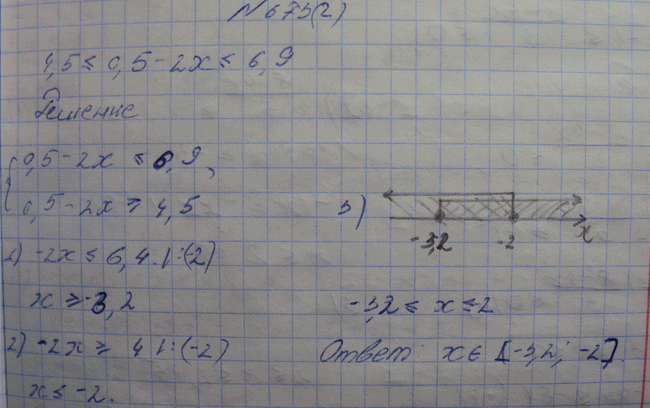 № 675(2)
4,5 ≤ 0,5 - 2x ≤ 6,9
Решение
{ 0,5 - 2x ≤ 6,9,
0,5 - 2x ≥ 4,5
1) -2x ≤ 6,4 | :(-2)
x ≥ -3,2
2) -2x ≥ 4 | :(-2)
x ≤ -2.
3)
-3,2 -2 x
-3,2 ≤ x ≤ -2
Ответ: x ∈ [-3,2; -2].